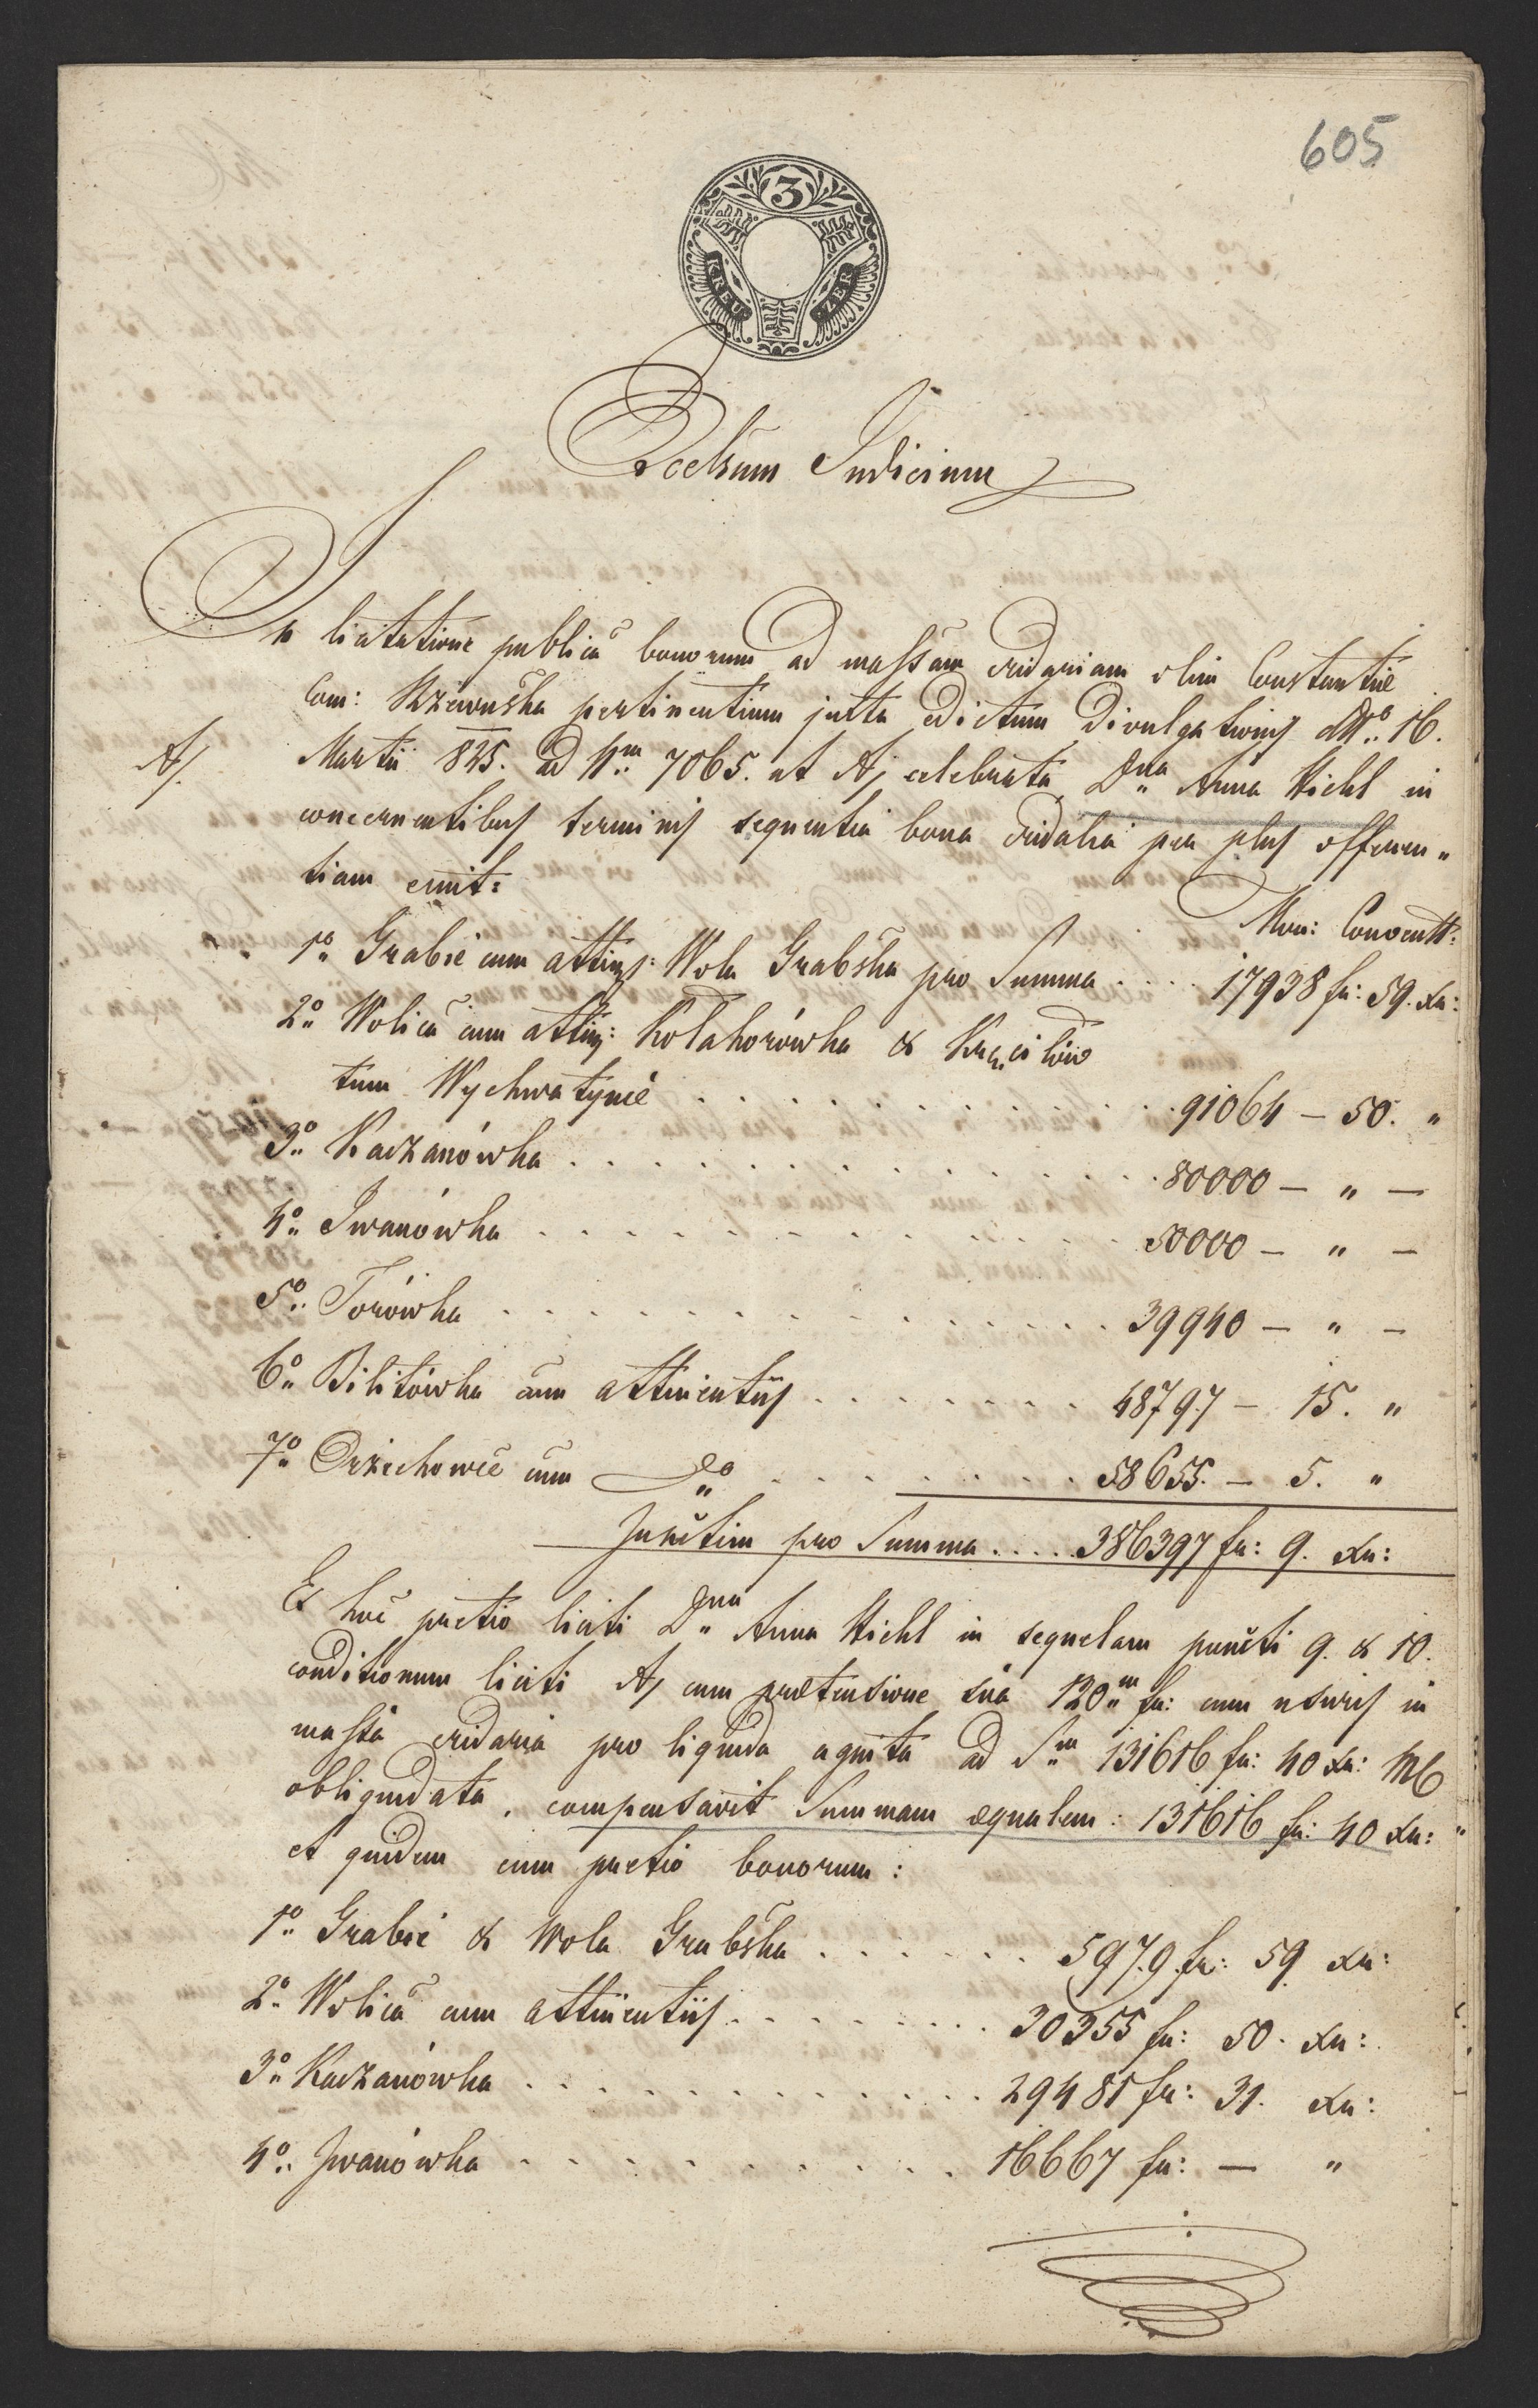 605
3
KREU ZER
Excelsum Judicium
In licitatione publica bonorum ad massam cridariam olim Constantiae
Com: Rzewuska pertinentium juxta edictum divulgationis ddto 16.
A/. Martii 825. ad Nrm 7065. ut A/ celebrata Dna Anna Hiehl in
concernentibus terminis sequentia bona cridalia per plus offeren„
tiam emit:
Mon: Conventt:
1o Grabie cum attinen: Wola Grabska pro Summa .... 17938 fr: 59. xr:
2o Wolica cum attin: Kołahorówka & Kręciłów
tum Wychwatynce . . . . . . . . 91064 – 50. „
3o Kaczanówka . . . . . . . . 80000 – „ –
4o Iwanówka . . . . . . . . 50000 – „ –
5o Torówka . . . . . . . . 39940 – „ –
6o Bilitówka cum attinentiis . . . . . . . 48797 – 15. „
7o Orzechowce cum do . . . . . . . 58655. – 5. „
Junctim pro Summa ..... 386397 fr: 9. xr:
Ex hoc pretio liciti Dna Anna Hiehl in sequelam puncti 9. & 10.
conditionum liciti A/ cum praetensione sua 120m fr: cum usuris in
massa cridaria pro liquida agnita ad Sm 131616 fr: 40 xr: MC
obliquidata, compensavit Summam aequalem: 131616 fr: 40 xr: „
et quidem cum pretio bonorum:
1o Grabie & Wola Grabska . . . . . . 5979 fr: 59 xr:
2o Wolica cum attinentiis . . . . . . . 30355 fr: 50. xr:
3o Kaczanówka . . . . . . . . . . . 29481 fr: 31. xr:
4o Iwanówka . . . . . . . . . . 16667 fr: – „